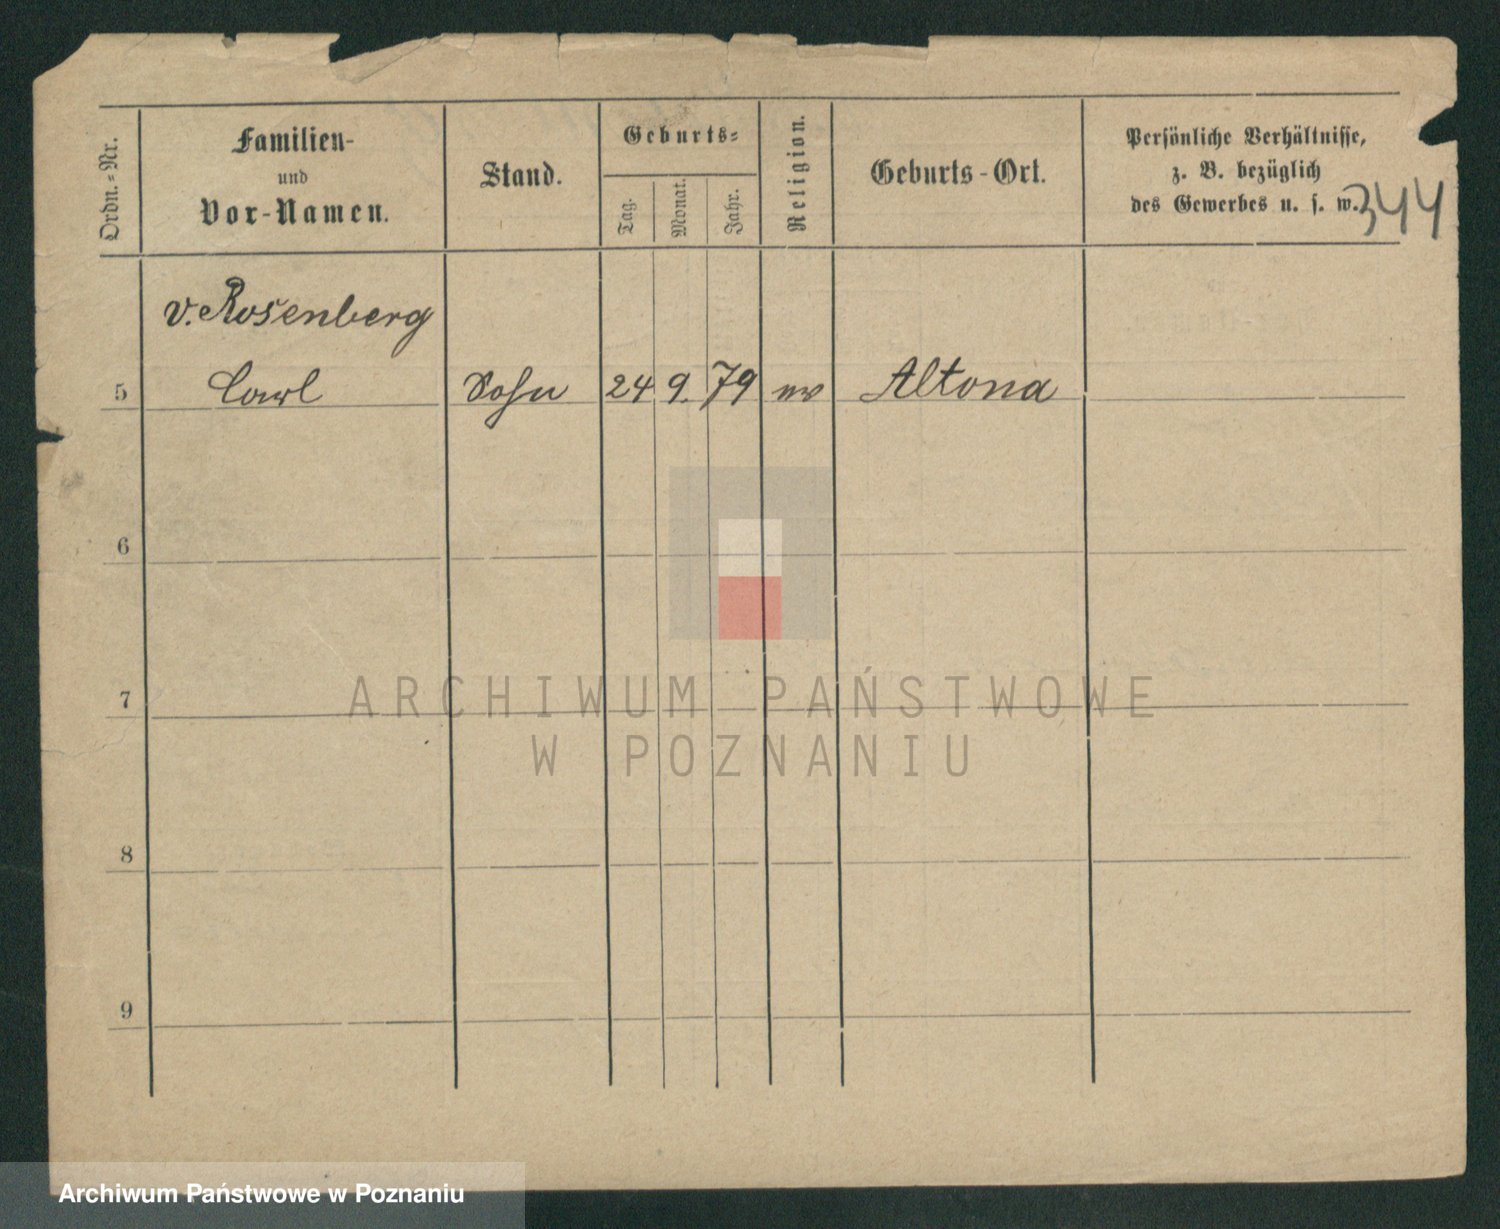 Ordn.-Nr.
Familien-
und
Vor-Namen.
Stand.
Geburts-
Tag.
Monat.
Jahr.
Religion.
Geburts-Ort.
Persönliche Verhältnisse,
z. B. bezüglich
des Gewerbes u. s. w.
344
v. Rosenberg
5 Carl Sohn 24 9. 79 Altona
6
7
8
9
ARCHIWUM PAŃSTWOWE
W POZNANIU
Archiwum Państwowe w Poznaniu